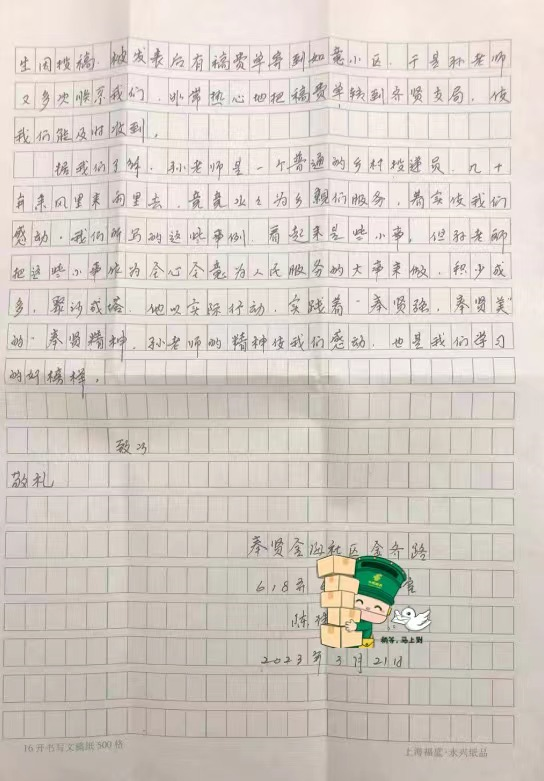 生因投稿，被发表后有稿费单寄到如意小区，于是孙老师
又多次联系我们，非常热心地把稿费单转到齐贤支局，使
我们能及时收到。
据我们了解，孙老师是一个普通的乡村投递员，几十
年来风里来雨里去，兢兢业业为乡亲们服务，着实使我们
感动。我们所写的这些事例，看起来是些小事，但孙老师
把这些小事作为全心全意为人民服务的大事来做，积少成
多，聚沙成塔。他以实际行动，实践着“奉贤强，奉贤美”
的“奉贤精神，孙老师的精神使我们感动，也是我们学习
的好榜样。
致以
敬礼
奉贤金海社区金齐路
618弄
陈
稍等，马上到
2023年3月21日
16开书写文稿纸500格
上海福篮·永兴纸品